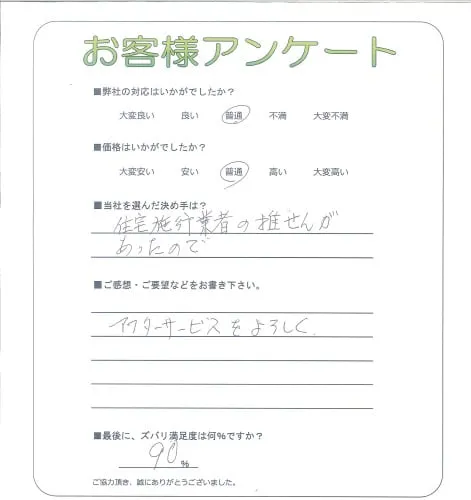 お客様アンケート
■弊社の対応はいかがでしたか？
大変良い 良い 普通 不満 大変不満
■価格はいかがでしたか？
大変安い 安い 普通 高い 大変高い
■当社を選んだ決め手は？
住宅施行業者の推せんが
あったので
■ご感想・ご要望などをお書き下さい。
アフターサービスをよろしく.
■最後に、ズバリ満足度は何%ですか？
90 %
ご協力頂き、誠にありがとうございました。